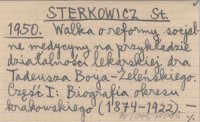 STERKOWICZ St.
1950. Walka o reformy socjal-
ne medycyny na przykładzie
działalności lekarskiej dra
Tadeusza Boya-Żeleńskiego.
Część I: Biografia okresu
krakowskiego (1874-1922). —